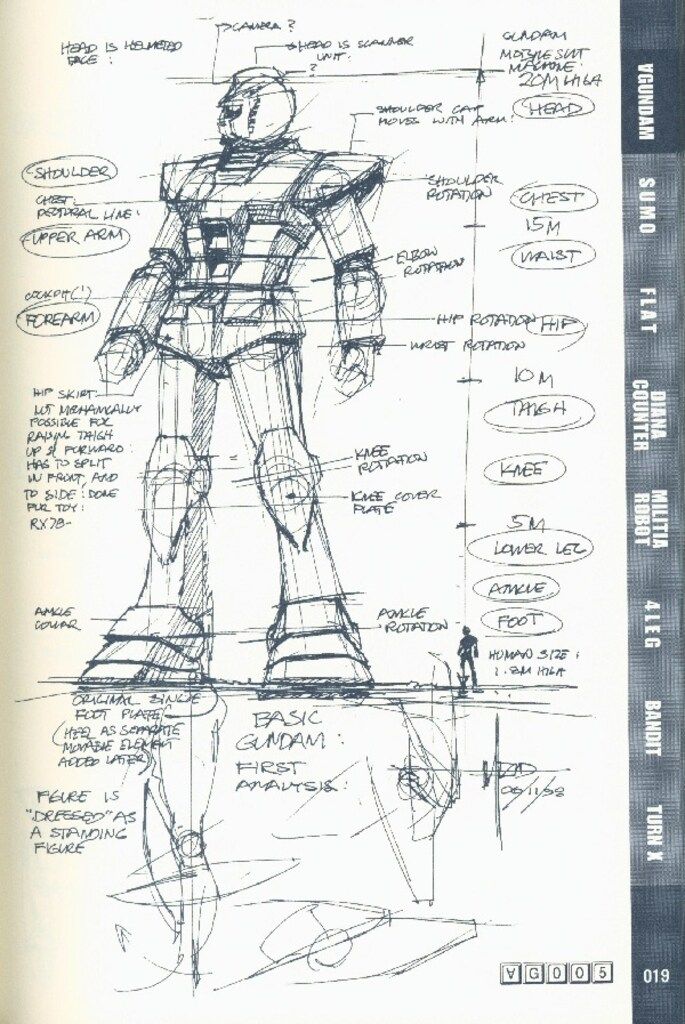 CAMERA ?
HEAD IS HELMETED
FACE :
HEAD IS SCANNER
UNIT.
?
GUNDAM
MOBILE SUIT
MACHINE
20M HIGH
HEAD
SHOULDER CAP
MOVES WITH ARM!
SHOULDER
CHEST
PECTORAL LINE:
UPPER ARM
SHOULDER
ROTATION
CHEST
15M
WAIST
ELBOW
ROTATION
COCKPIT(!)
FOREARM
HIP ROTATION
HIP
WRIST ROTATION
10M
THIGH
HIP SKIRT:
NOT MECHANICALLY
POSSIBLE FOR
RAISING THIGH
UP & FORWARD:
HAS TO SPLIT
IN FRONT, AND
TO SIDE: DONE
FOR TOY:
RX78-
KNEE
ROTATION
KNEE
KNEE COVER
PLATE
5M
LOWER LEG
ANKLE
FOOT
ANKLE
COLLAR
ANKLE
ROTATION
HUMAN SIZE:
1.8M HIGH
ORIGINAL SINGLE
FOOT PLATE
(HEEL AS SEPARATE
MOVABLE ELEMENT
ADDED LATER)
BASIC
GUNDAM:
FIRST
ANALYSIS:
FIGURE IS
"DRESSED" AS
A STANDING
FIGURE
∀G005
019
∀GUNDAM
SUMO
FLAT
DIANA
COUNTER
MILITIA
ROBOT
4 LEG
BANDIT
TURN X